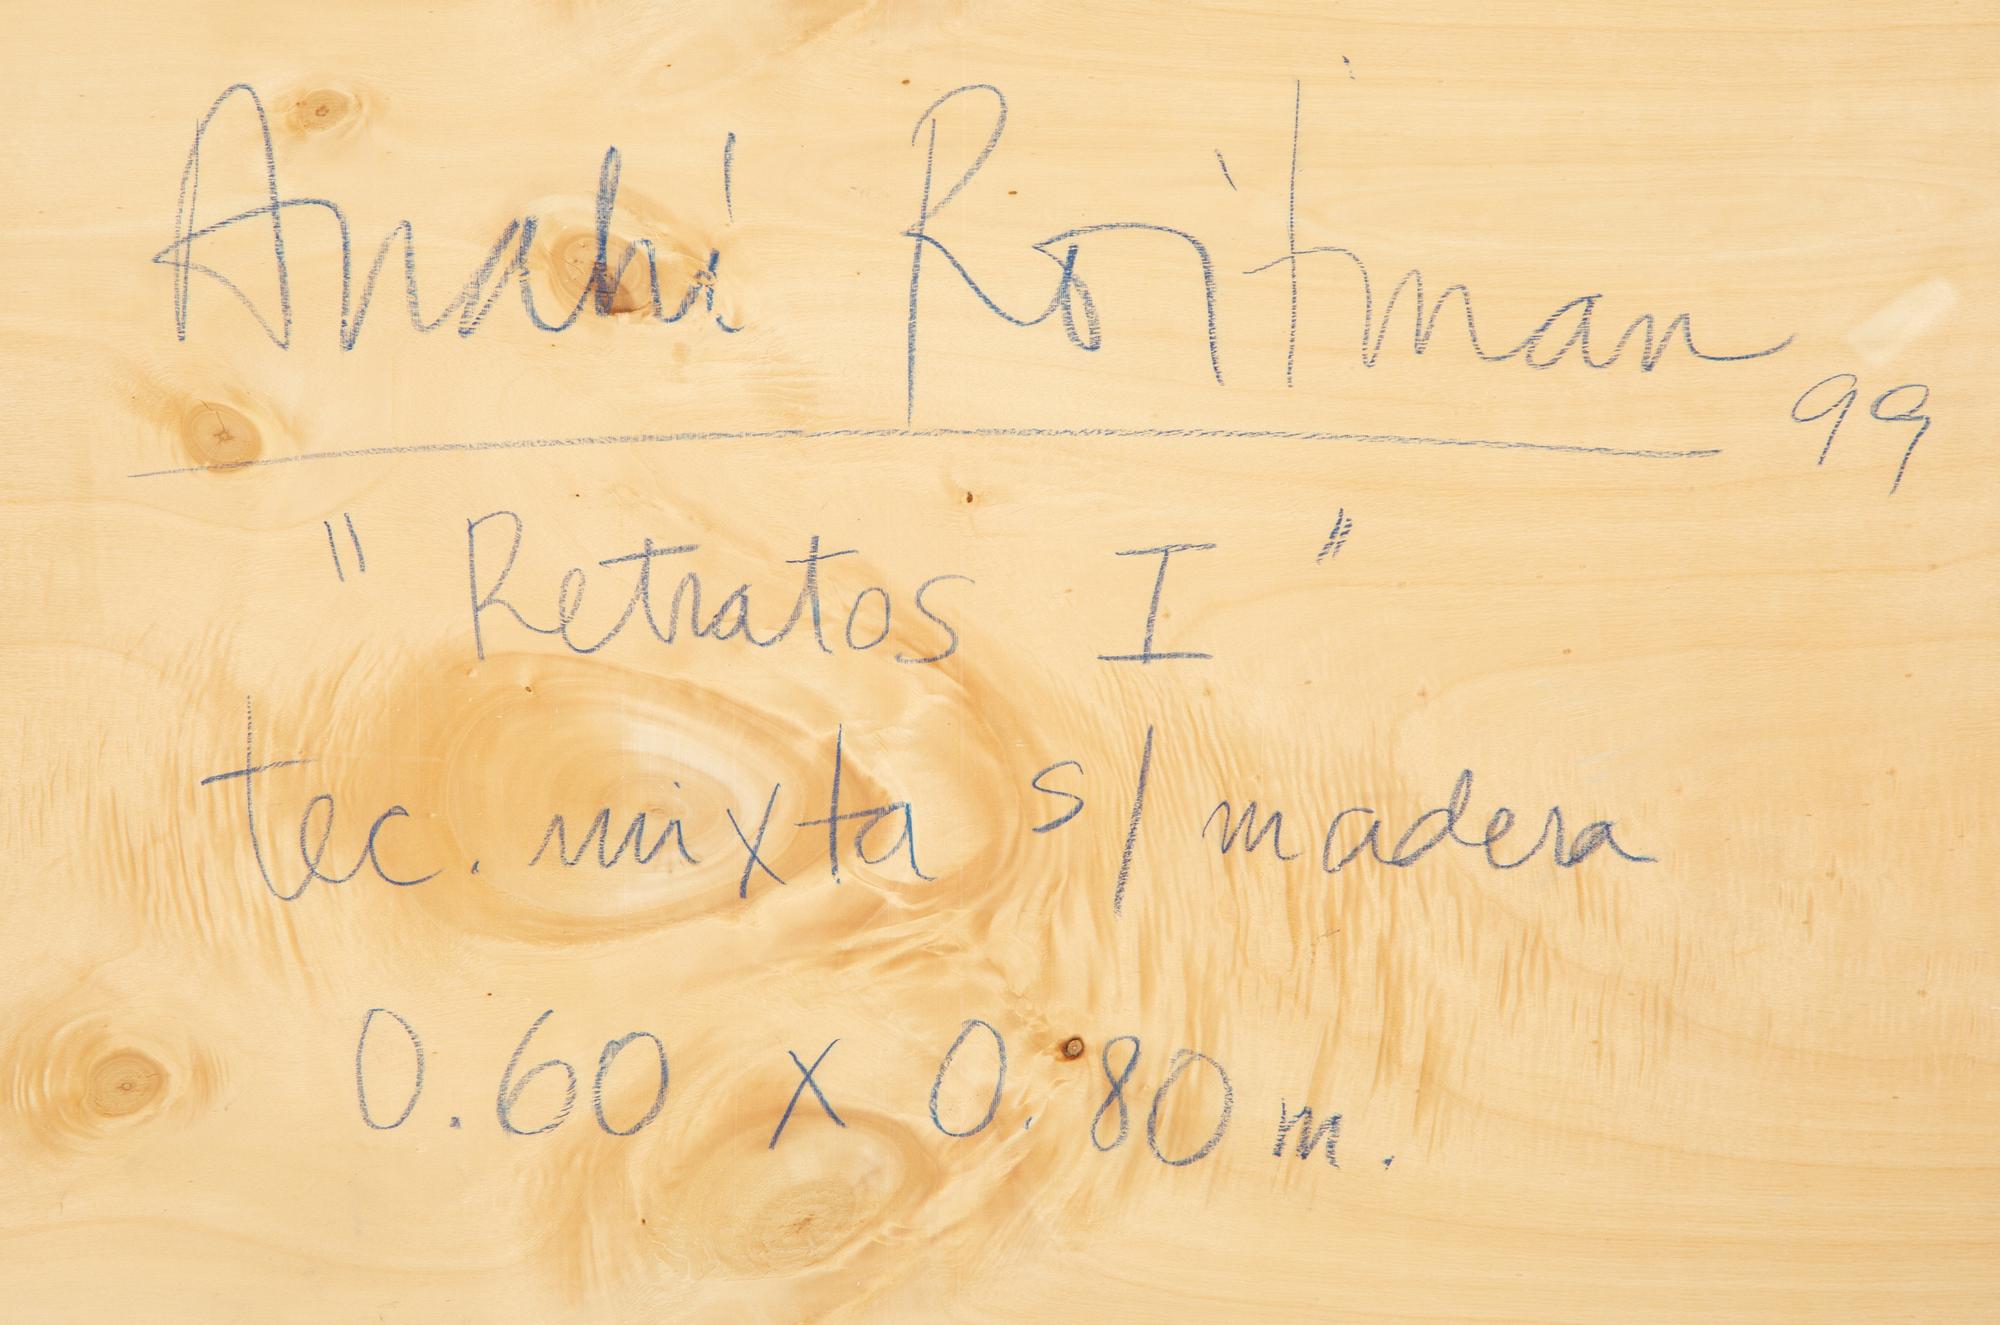 Anahí Roitman 99
"Retratos I"
tec. mixta s/ madera
0.60 x 0.80 m.